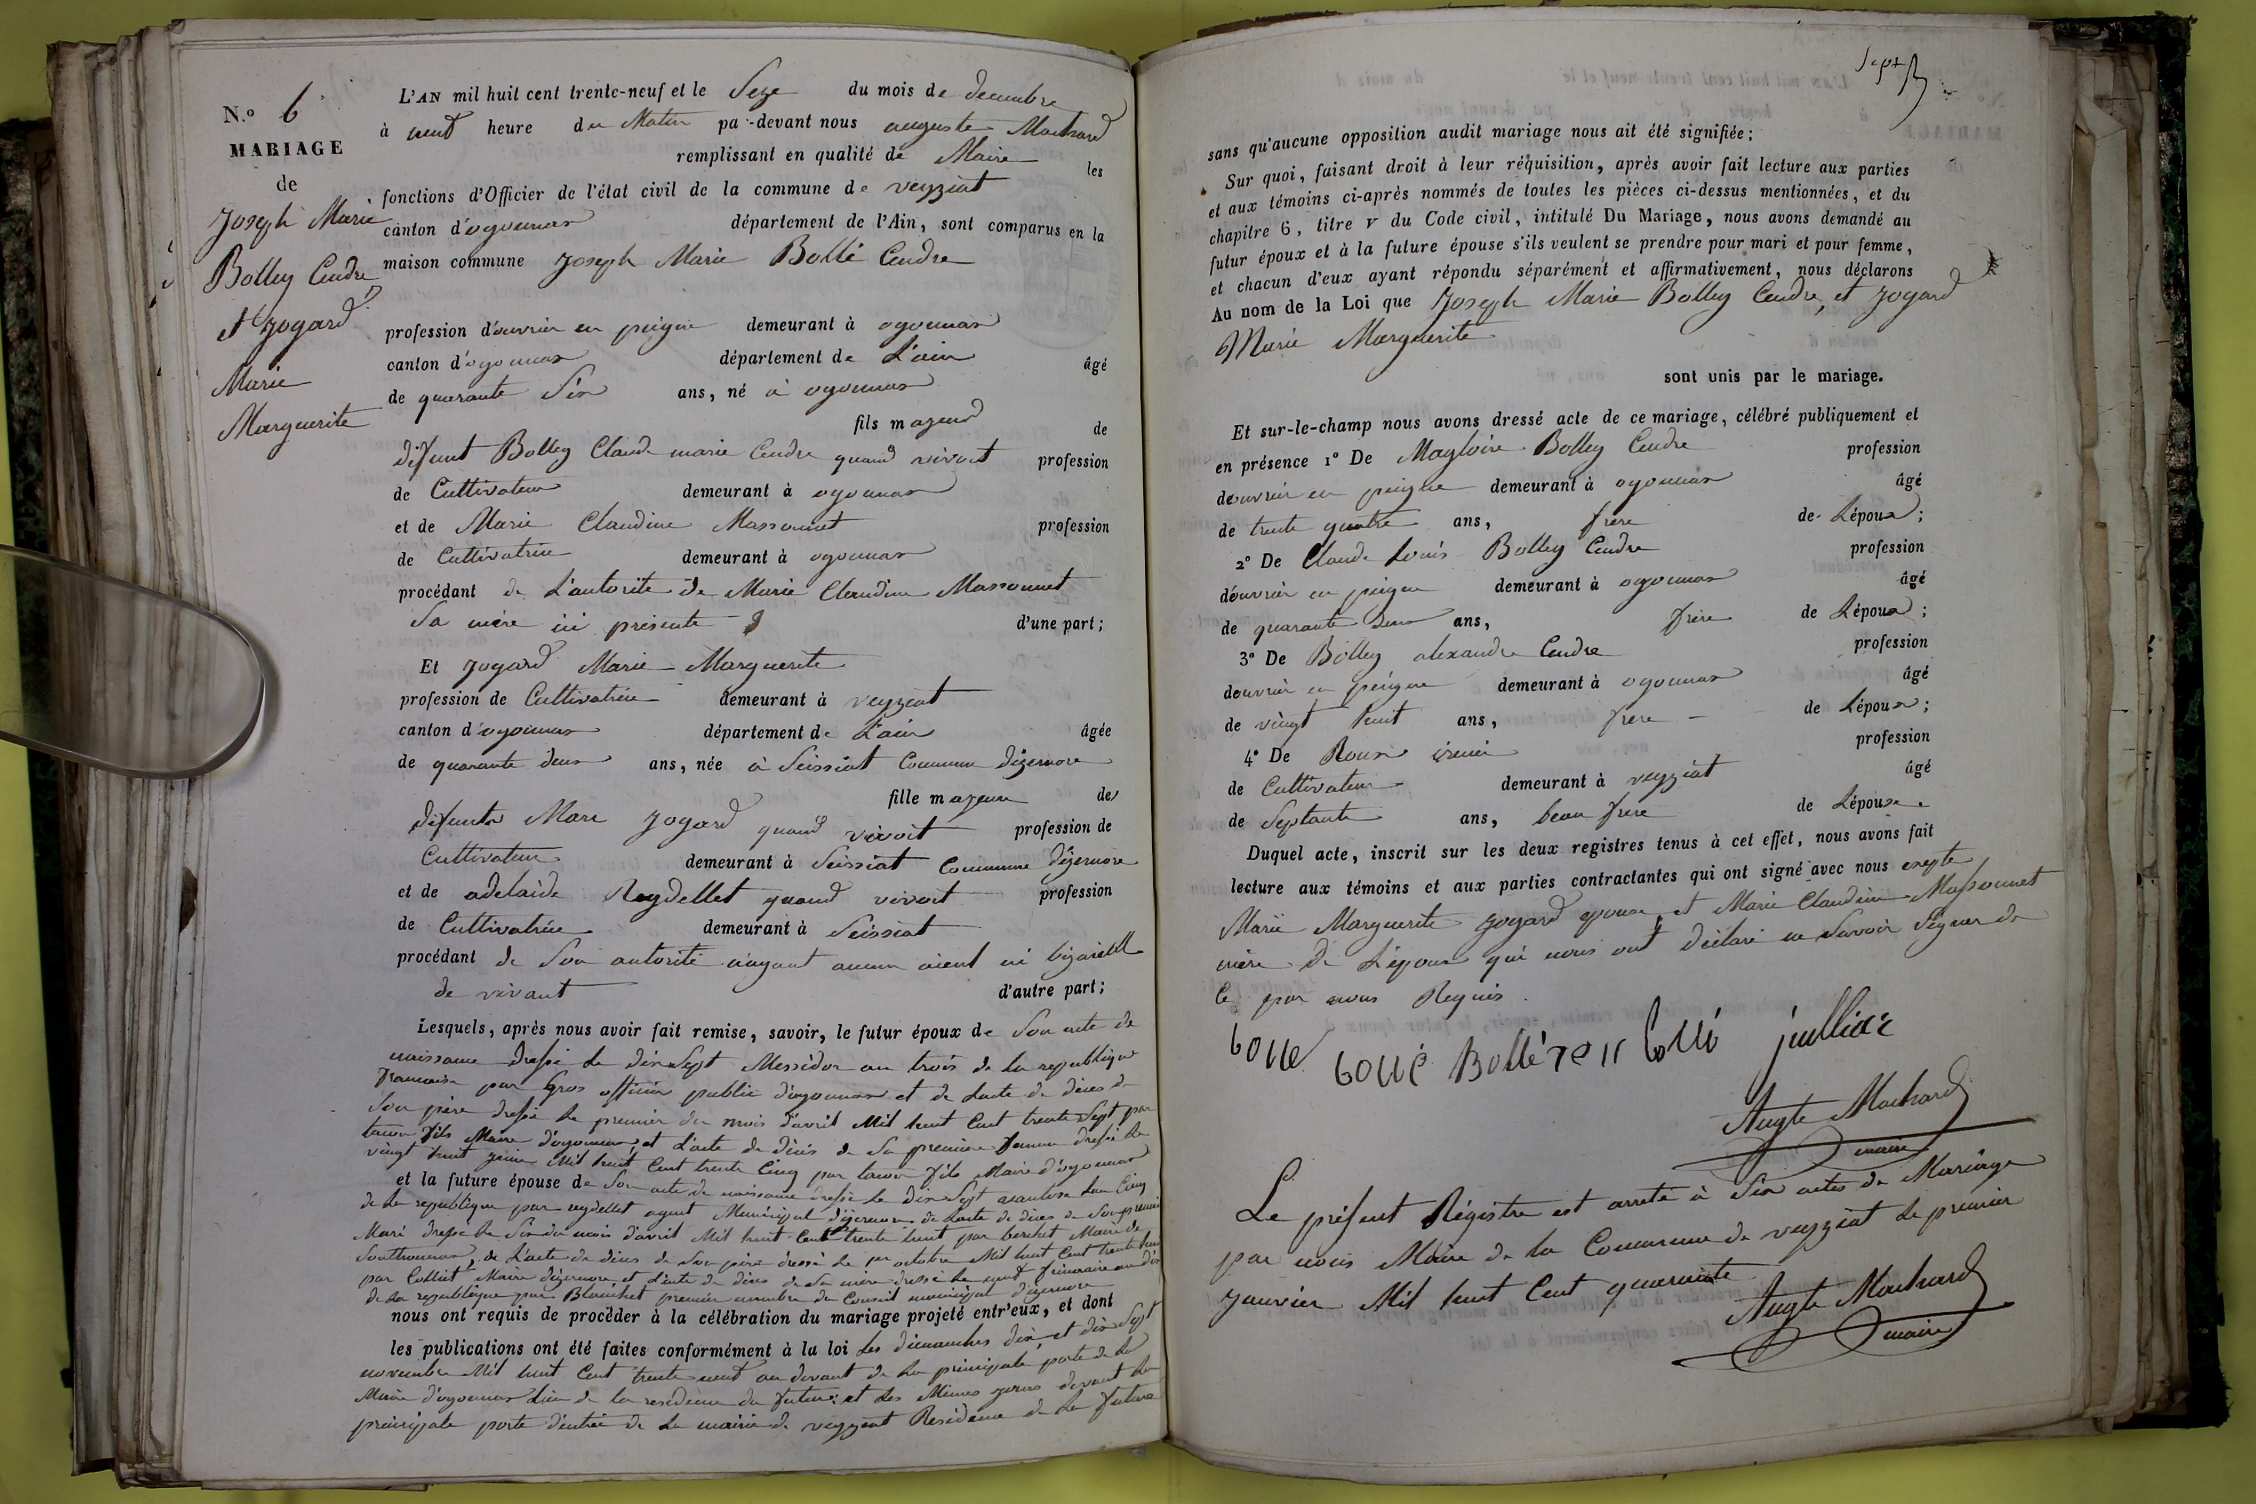 N.o 6
MARIAGE
de
Joseph Marie
Bolley Cendre
et Jogard
Marie
Marguerite
L'AN mil huit cent trente-neuf et le Seze du mois de decembre
à neuf heure du Matin par-devant nous auguste Machard
remplissant en qualité de Maire les
fonctions d'Officier de l'état civil de la commune de veyziat
canton d'oyonnax département de l'Ain, sont comparus en la
maison commune Joseph Marie Bollé Cendre
profession d'ouvrier en peigne demeurant à oyonnax
canton d'oyonnax département de L'ain âgé
de quarante Six ans, né à oyonnax
fils majeur de
défunt Bolley Claude marie Cendre quand vivoit profession
de Cultivateur demeurant à oyonnax
et de Marie Claudine Massonnet profession
de Cultivatrice demeurant à oyonnax
procédant de L'autorité de Marie Claudine Massonnet
Sa mère ici présente d'une part;
Et Jogard Marie Marguerite
profession de Cultivatrice demeurant à veyziat
canton d'oyonnax département de L'ain âgée
de quarante deux ans, née à Seissiat Commune d'izernore
fille majeure des
défunts Marc Jogard quand vivoit profession de
Cultivateur demeurant à Seissiat Commune d'izernore
et de adelaide Reydellet quand vivoit profession
de Cultivatrice demeurant à Seissiat
procédant de Son autorité n'ayant aucun aieul ni bizaieul
de vivant d'autre part;
Lesquels, après nous avoir fait remise, savoir, le futur époux de Son acte de
naissance dressé le dix Sept Messidor an trois de la republique
francaise par Gros officier public d'oyonnax et de Lacte de déces de
Son père dressé le premier du mois d'avril Mil huit Cent trente Sept par
fils Maire d'oyonnax et L'acte de décès de Sa premiere femme dressé le
vingt huit juin Mil huit Cent trente Cinq par fils Maire d'oyonnax
et la future épouse de Son acte de naissance dressé le dix Sept vantose Lan Cinq
de la republique par reydellet agent Municipal d'izernore de Lacte de déces de Son premier
Mari dressé le Six du mois d'avril Mil huit Cent trente huit par Maire de
de L'acte de déces de Son père dressé le 1er octobre Mil huit Cent trente
par Colliet Maire d'izernore et L'acte de décès de Sa mère dressé le neuf frimaire an dix
de la republique par Blanchet premier membre du Conseil municipal d'izernore
nous ont requis de procéder à la célébration du mariage projeté entr'eux, et dont
les publications ont été faites conformément à la loi les dimanches dix et dix Sept
novembre Mil huit Cent trente neuf au devant de La principale porte de la
Mairie d'oyonnax lieu de la residence du futur: et les Mêmes jours devant la
principale porte d'entrée de La mairie de veyziat Residence de La future
sans qu'aucune opposition audit mariage nous ait été signifiée;
Sur quoi, faisant droit à leur réquisition, après avoir fait lecture aux parties
et aux témoins ci-après nommés de toutes les pièces ci-dessus mentionnées, et du
chapitre 6, titre V du Code civil, intitulé Du Mariage, nous avons demandé au
futur époux et à la future épouse s'ils veulent se prendre pour mari et pour femme,
et chacun d'eux ayant répondu séparément et affirmativement, nous déclarons
Au nom de la Loi que Joseph Marie Bolley Cendre, et Jogard
Marie Marguerite
sont unis par le mariage.
Et sur-le-champ nous avons dressé acte de ce mariage, célébré publiquement et
en présence 1° De Magloire Bolley Cendre profession
d'ouvrier en peigne demeurant à oyonnax âgé
de trente quatre ans, frère de Lépoux;
2° De Claude Louis Bolley Cendre profession
d'ouvrier en peigne demeurant à oyonnax âgé
de quarante deux ans, frère de Lépoux;
3° De Bolley alexandre Cendre profession
d'ouvrier en peigne demeurant à oyonnax âgé
de vingt huit ans, frere de Lépoux;
4° De Roux profession
de Cultivateur demeurant à veyziat âgé
de Septante ans, beau frère de Lépouse.
Duquel acte, inscrit sur les deux registres tenus à cet effet, nous avons fait
lecture aux témoins et aux parties contractantes qui ont signé avec nous exepté
Marie Marguerite Jogard epouse et Marie Claudine Massonnet
mère de L'époux qui nous ont déclaré ne Savoir Signer de
Ce par nous Requis.
Augte Machard
maire
Le présent Régistre est arreté à Six actes de Mariage
par nous Maire de la Commune de veyziat le premier
Janvier Mil huit Cent quarante
Augte Machard
maire